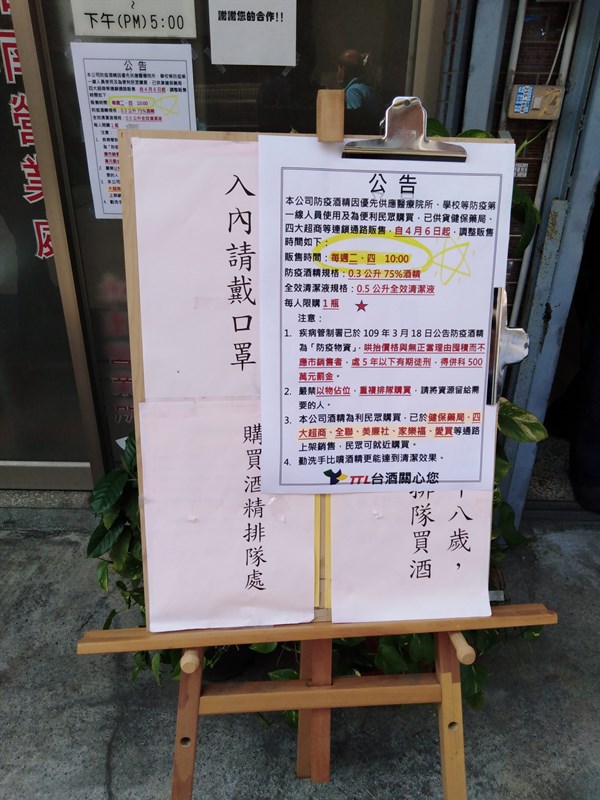 ~
下午(PM)5:00
謝謝您的合作!!
營業
公告
入內請戴口罩
購買酒精排隊處
公告
本公司防疫酒精因優先供應醫療院所、學校等防疫第
一線人員使用及為便利民眾購買，已供貨健保藥局、
四大超商等連鎖通路販售，自4月6日起，調整販售
時間如下：
販售時間：每週二、四 10:00
防疫酒精規格：0.3公升75%酒精
全效清潔液規格：0.5公升全效清潔液
每人限購1瓶 ★
注意：
1. 疾病管制署已於109年3月18日公告防疫酒精
為「防疫物資」，哄抬價格與無正當理由囤積而不
應市銷售者，處5年以下有期徒刑，得併科500
萬元罰金。
2. 嚴禁以物佔位，重複排隊購買，請將資源留給需
要的人。
3. 本公司酒精為利民眾購買，已於健保藥局、四
大超商、全聯、美廉社、家樂福、愛買等通路
上架銷售，民眾可就近購買。
4. 勤洗手比噴酒精更能達到清潔效果。
TTL台酒關心您
十八歲，
排隊買酒